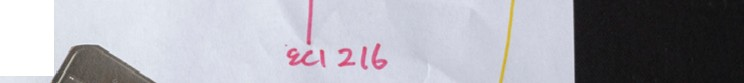 ECI 216